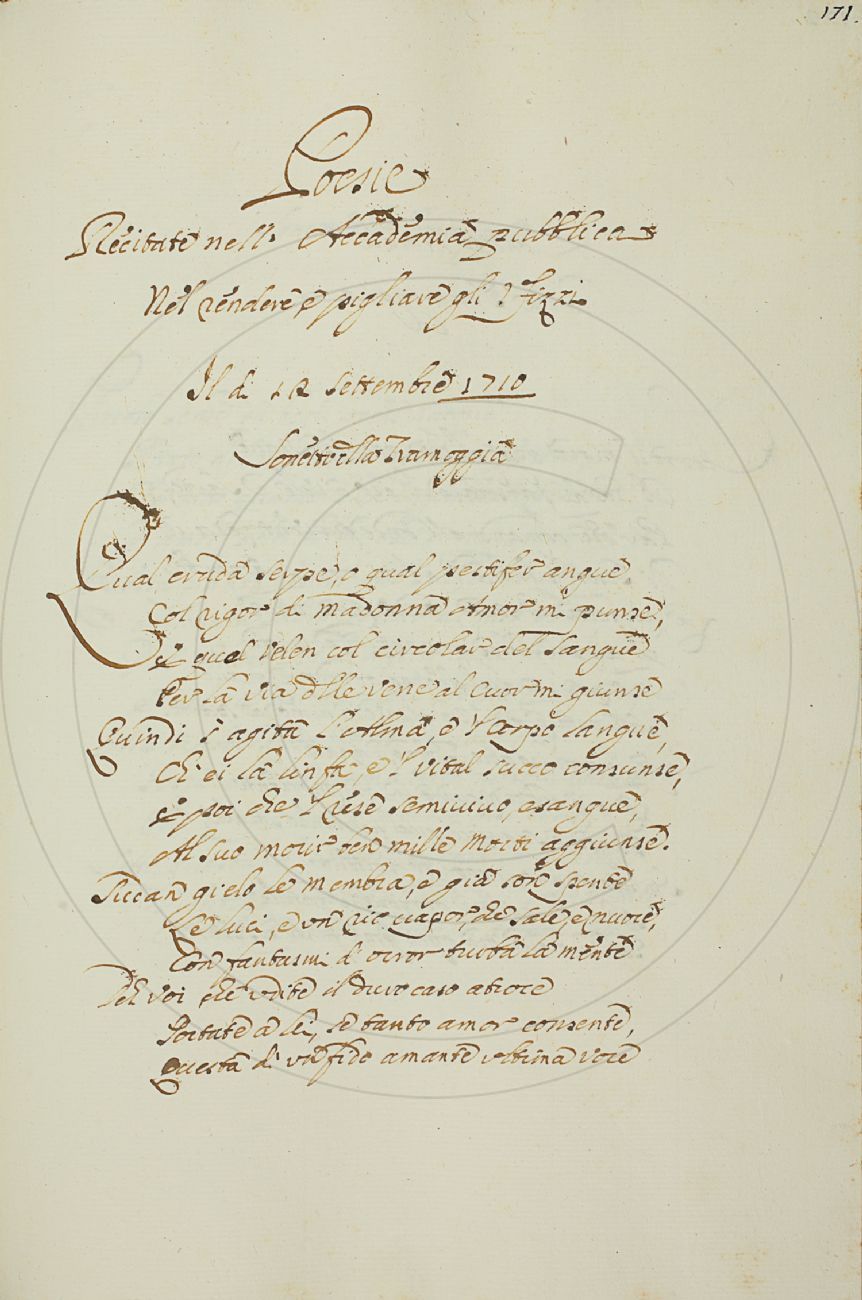 171.
Poesie
Recitate nell' Accademia pubblica
Nel rendere e pigliare gli Ufizzi
Il di 12 Settembre 1710
Sonetto della Tramoggia
Qual cruda serpe, o qual pestifer angue
Col rigor di madonna Amor mi punse,
E qual velen col circolar del sangue
Per la via delle vene al cuor mi giunse
Quindi s'agita l'Alma, e 'l Corpo langue,
Ch' ei la linfa, e 'l vital succo consunse,
E poi che 'l rese semivivo, esangue,
Al suo morir ben mille morti aggiunse.
Siccan gielo le membra, e già son spente
Le luci, e un rio vapor, che sale, e nuoce,
Con fantasmi d' orror turba la mente
Deh voi che udite il duro caso atroce
Portate a lei, se tanto amor consente,
Questa di un fido amante ultima voce